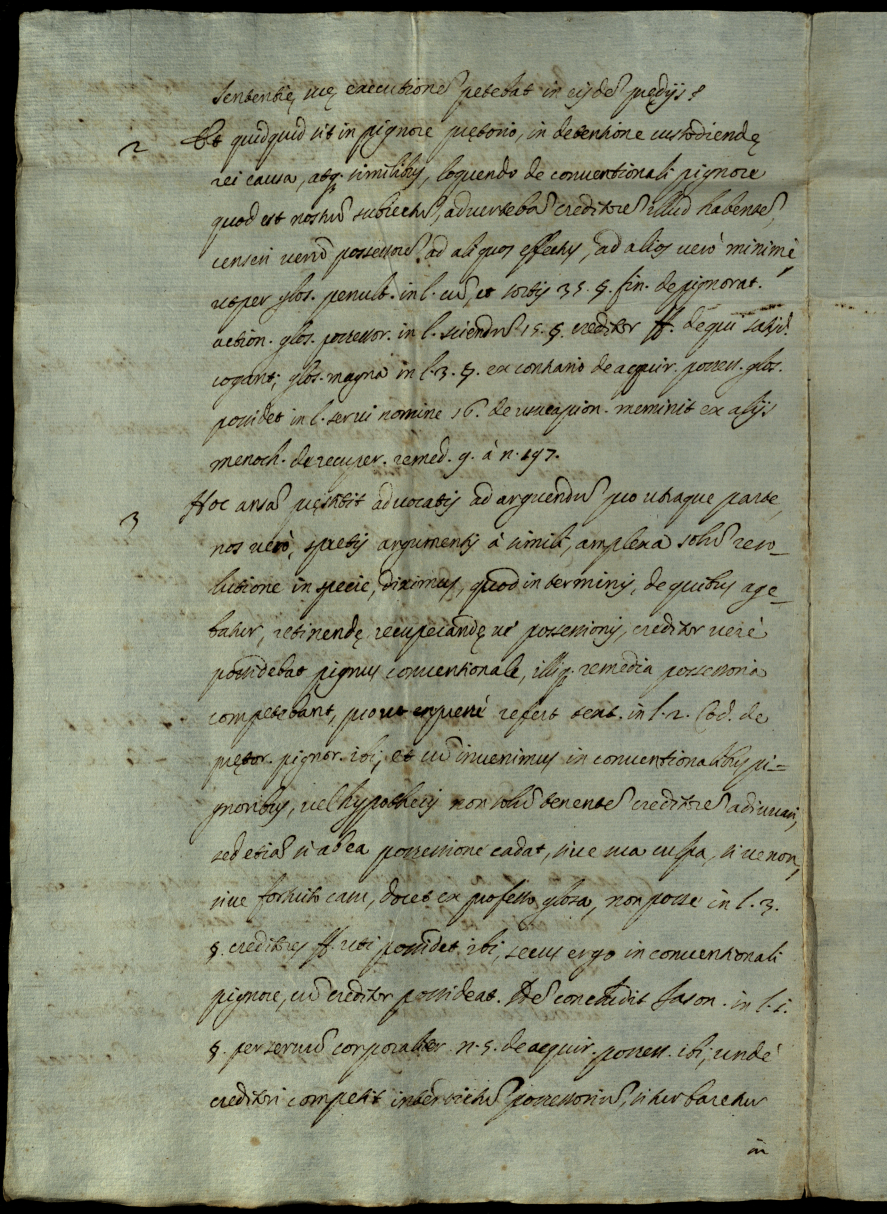 sententię, suę executionē petebat in eijsdē prędijs?
2 Et quidquid sit in pignore prętorio, in detentione custodiendę
rei causa, atq; similibus, loquendo de conventionali pignore
quod est nostrū subiectū, advertebā creditorē illud habentē,
censeri verū possessorē ad aliquos effectus, ad alios verò minimè
ut per glos. penult. in l. cū et sortis 35. §. fin. de pignorat.
action. glos. possessor. in l. sciendū 15. §. creditor ff. de qui satisd.
cogant; glos. magna in l. 3. §. ex contrario de acquir. possess. glos.
possidet in l. servi nomine 16. de usucapion. meminit ex alijs
menoch. de recuper. remed. 9. à n. 197.
3 Hoc ansā pręstitit advocatis ad arguendū pro utraque parte,
nos verò, spretis argumentis à simili, amplexa solū reso-
lutione in specie, diximus, quod in terminis, de quibus age-
batur, retinendę recuperandę vè possessionis, creditor verè
possidebat pignus conventionale, illiq; remedia possessoria
competebant, prout refert text. in l. 2. Cod. de
prętor. pignor. ibi; et cū invenimus in conventionalibus pi=
gnoribus, vel hypothecis non solū tenentē creditorē adiuvari,
sed etiā si ab ea possessione cadat, sive sua culpa, sive non,
sive fortuito casu, docet ex professo glosa, non posse in l. 3.
§. creditores ff. uti possidet. ibi, secus ergo in conventionali
pignore, cū creditor possideat. Idē concludit Jason. in l. 1.
§. per servū corporaliter n. 5. de acquir. possess. ibi; undè
creditori competit interdictū possessoriū, si turbaretur
in